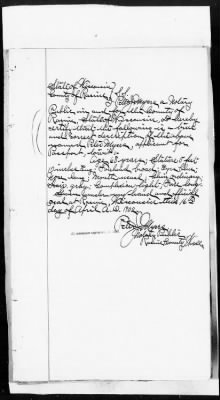 State of Wisconsin
County of Racine } SS
I, Peter B. Myers a Notary
Public, in and for the County of
Racine, State of Wisconsin, do hereby
certify that the following is a true
and correct description of the above
named Peter Myers, applicant for
Passport, to wit:
Age 68 years, Stature 5 feet
inches, Forehead broad, Eyes blue
Nose long, Mouth usual, Chin ordinary
hair gray, Complexion light, Face long.
Given under my hand and official
seal at Racine, Wisconsin this 16
day of April A.D. 1902.
Peter B. Myers
Notary Public
Racine County, Wis.